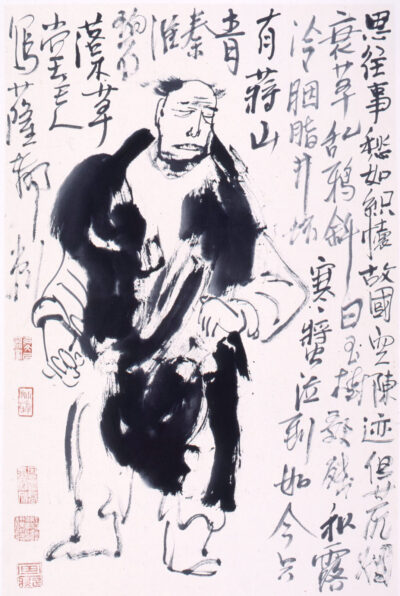 思往事愁如織懷故國空陳迹但荒烟
衰草乱鴉斜日玉樹歌殘秋露
冷胭脂井坏寒螀泣到如今只
有蒋山
青
秦
淮
碧
落木草
堂主人
寫薩都剌